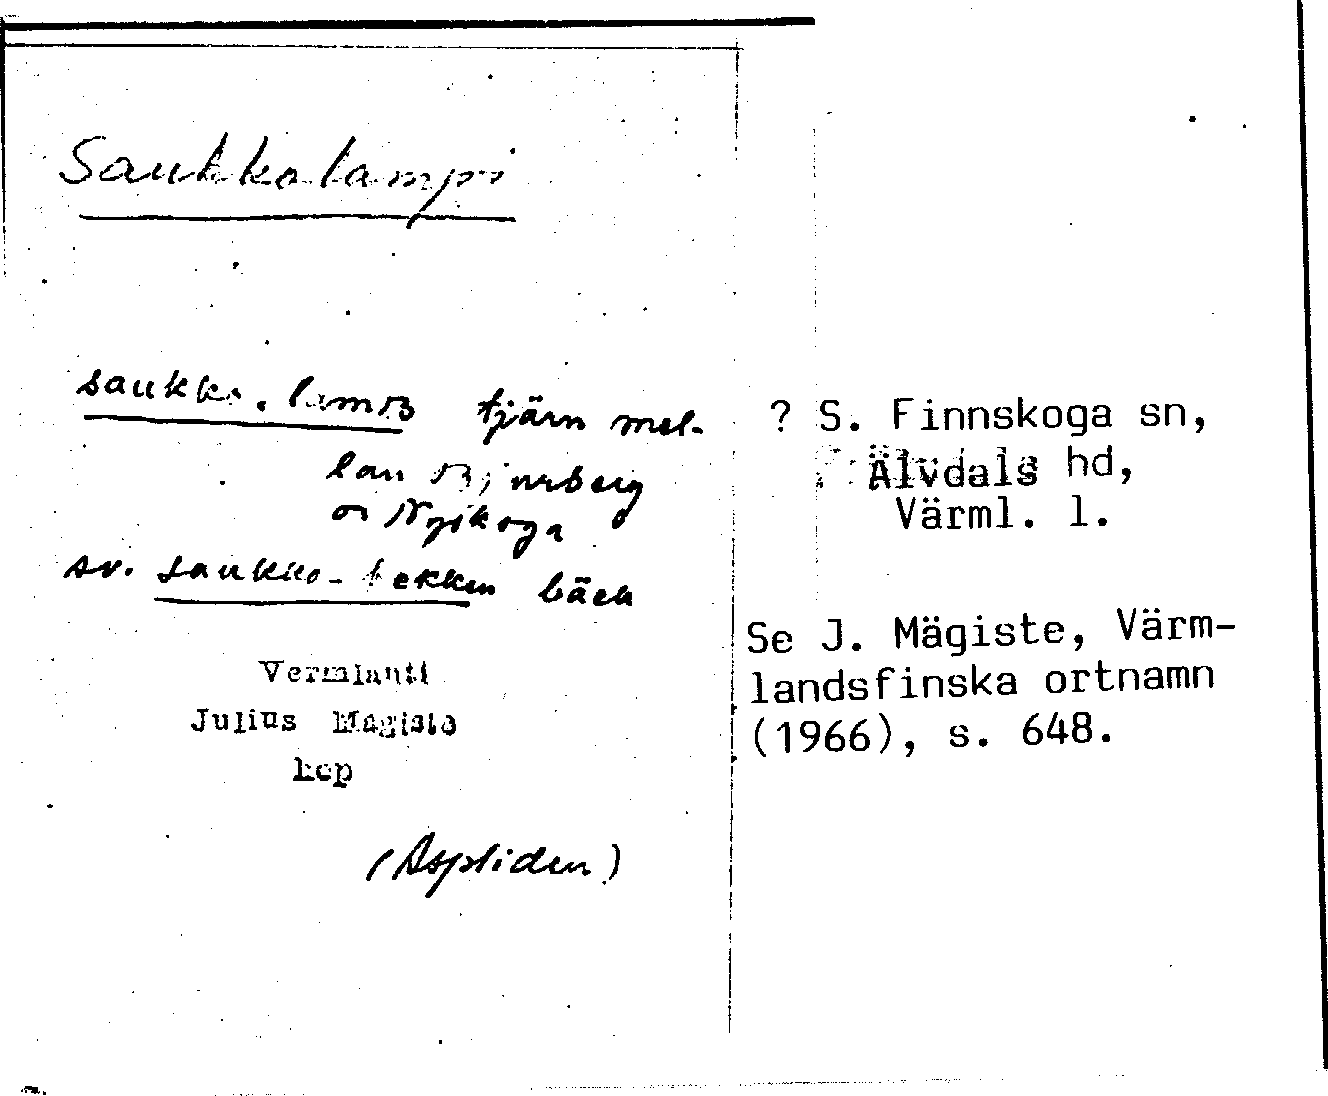 Saukkolampi
saukko. lamB tjärn mel-
lan Bjurberg
o Nyskoga
sv. saukko-bekken bäck
Vermlanti
Julius Mägiste
kop
(Aspliden)
? S. Finnskoga sn,
Älvdals hd,
Värml. l.
Se J. Mägiste, Värm-
landsfinska ortnamn
(1966), s. 648.